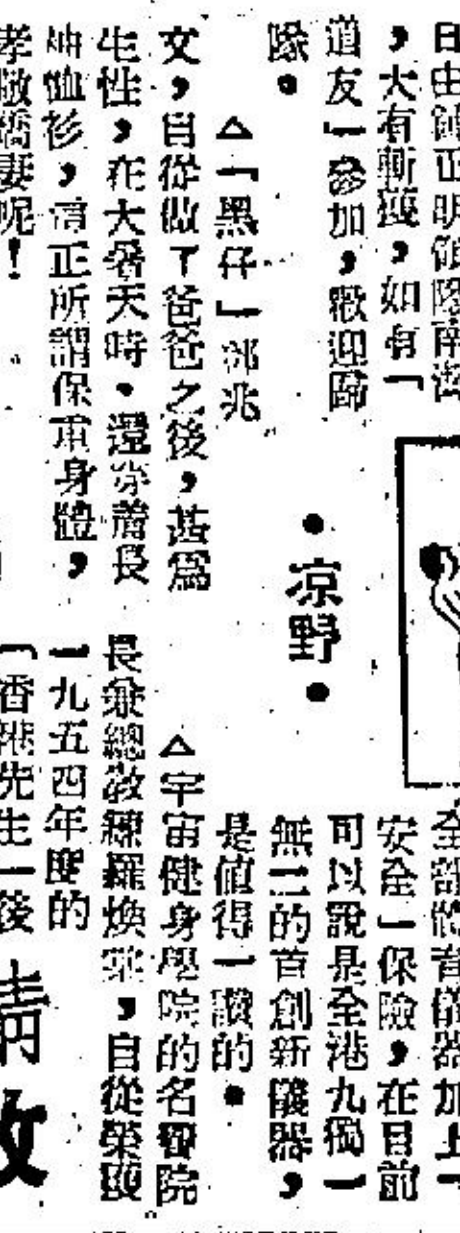 日由正明領隊南
，大有斬獲，如有「
道友」參加，歡迎歸
隊。
△「黑仔」兆
文，自從做了爸爸之後，甚爲
生性，在大暑天時，還穿着長
袖恤衫，這正所謂保重身體，
孝敬嬌妻呢！
•凉野•
全部體育儀器加上「
安全」保險，在目前
可以說是全港九獨一
無二的首創新儀器，
是值得一讚的。
△宇宙健身學院的名譽院
長兼總教練羅煥，自從榮獲
一九五四年度的
「香港先生」後